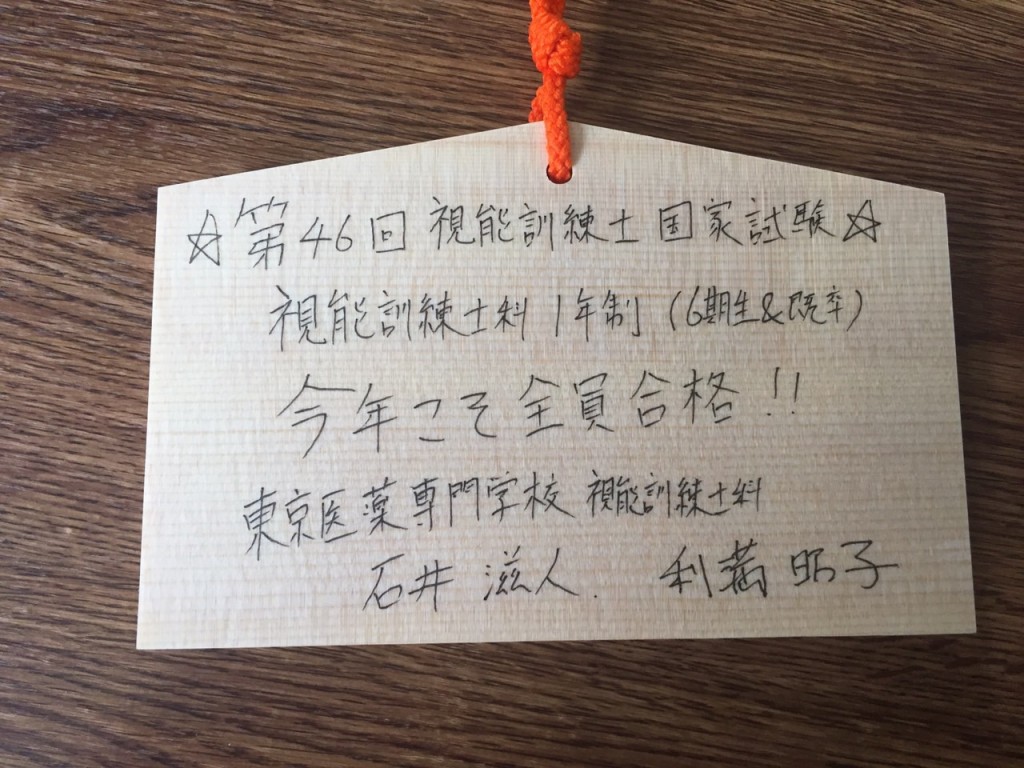 ☆第46回 視能訓練士 国家試験☆
視能訓練士科 1年制 (6期生&既卒)
今年こそ全員合格!!
東京医薬専門学校 視能訓練士科
石井 滋人. 利 昭子